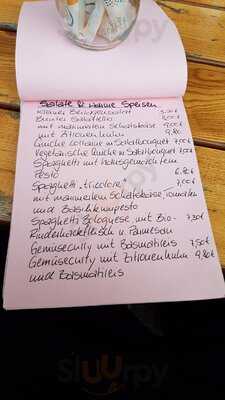 Salate & warme Speisen
Kleiner Beilagensalat 3,50 €
Bunter Salatteller 8,00 €
mit mariniertem Schafskäse 9,00 €
mit Zitronenhuhn 9,80
Quiche Lorraine m. Salatbouquet 7,50 €
Vegetarische Quiche m. Salatbouquet 7,00 €
Spaghetti mit hausgemachtem
Pesto 6,80 €
Spaghetti "tricolore" 7,00 €
mit mariniertem Schafskäse, Tomaten
und Basilikumpesto
Spaghetti Bolognese mit Bio- 7,30 €
Rinderhackfleisch u. Parmesan
Gemüsecurry mit Basmatireis 7,50 €
Gemüsecurry mit Zitronenhuhn 9,80 €
und Basmatireis
sluurpy